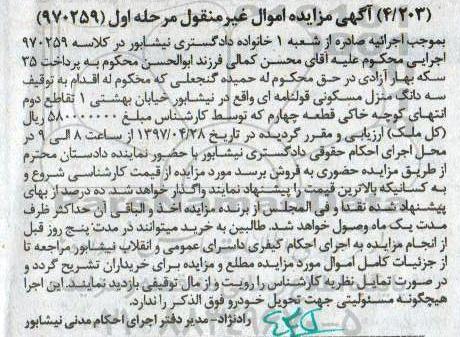 (۴/۲۰۳) آگهی مزایده اموال غیرمنقول مرحله اول (۹۷۰۲۵۹)
بموجب اجرائیه صادره از شعبه ۱ خانواده دادگستری نیشابور در کلاسه ۹۷۰۲۵۹
اجرایی محکوم علیه آقای محسن کمالی فرزند ابوالحسن محکوم به پرداخت ۳۵
سکه بهار آزادی در حق محکوم له حمیده گنجعلی که محکوم له اقدام به توقیف
سه دانگ منزل مسکونی قولنامه ای واقع در نیشابور خیابان بهشتی ۱ تقاطع دوم
انتهای کوچه خاکی قطعه چهارم که توسط کارشناس مبلغ ۵۸۰۰۰۰۰۰۰ ریال
(کل ملک) ارزیابی و مقرر گردیده در تاریخ ۱۳۹۷/۰۴/۲۸ از ساعت ۸ الی ۹ در
محل اجرای احکام حقوقی دادگستری نیشابور با حضور نماینده دادستان محترم
از طریق مزایده حضوری به فروش برسد مورد مزایده از قیمت کارشناسی شروع و
به کسانیکه بالاترین قیمت را پیشنهاد نمایند واگذار خواهد شد. ده درصد از بهای
پیشنهاد شده نقدا و فی المجلس از برنده مزایده اخذ و الباقی آن حداکثر ظرف
مدت یک ماه وصول خواهد شد. طالبین به خرید میتوانند در مدت پنج روز قبل
از انجام مزایده به اجرای احکام کیفری دادسرای عمومی و انقلاب نیشابور مراجعه تا
از جزئیات کامل اموال مورد مزایده مطلع و مزایده برای خریداران تشریح گردد و
در صورت تمایل نظریه کارشناس را رویت و از مال توقیفی بازدید نمایند. این اجرا
هیچگونه مسئولیتی جهت تحویل خودرو فوق الذکر را ندارد.
رادنژاد- مدیر دفتر اجرای احکام مدنی نیشابور